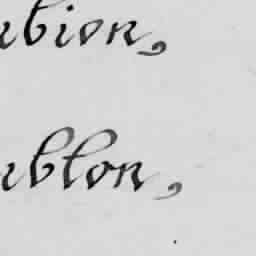 ubion,
ublon,